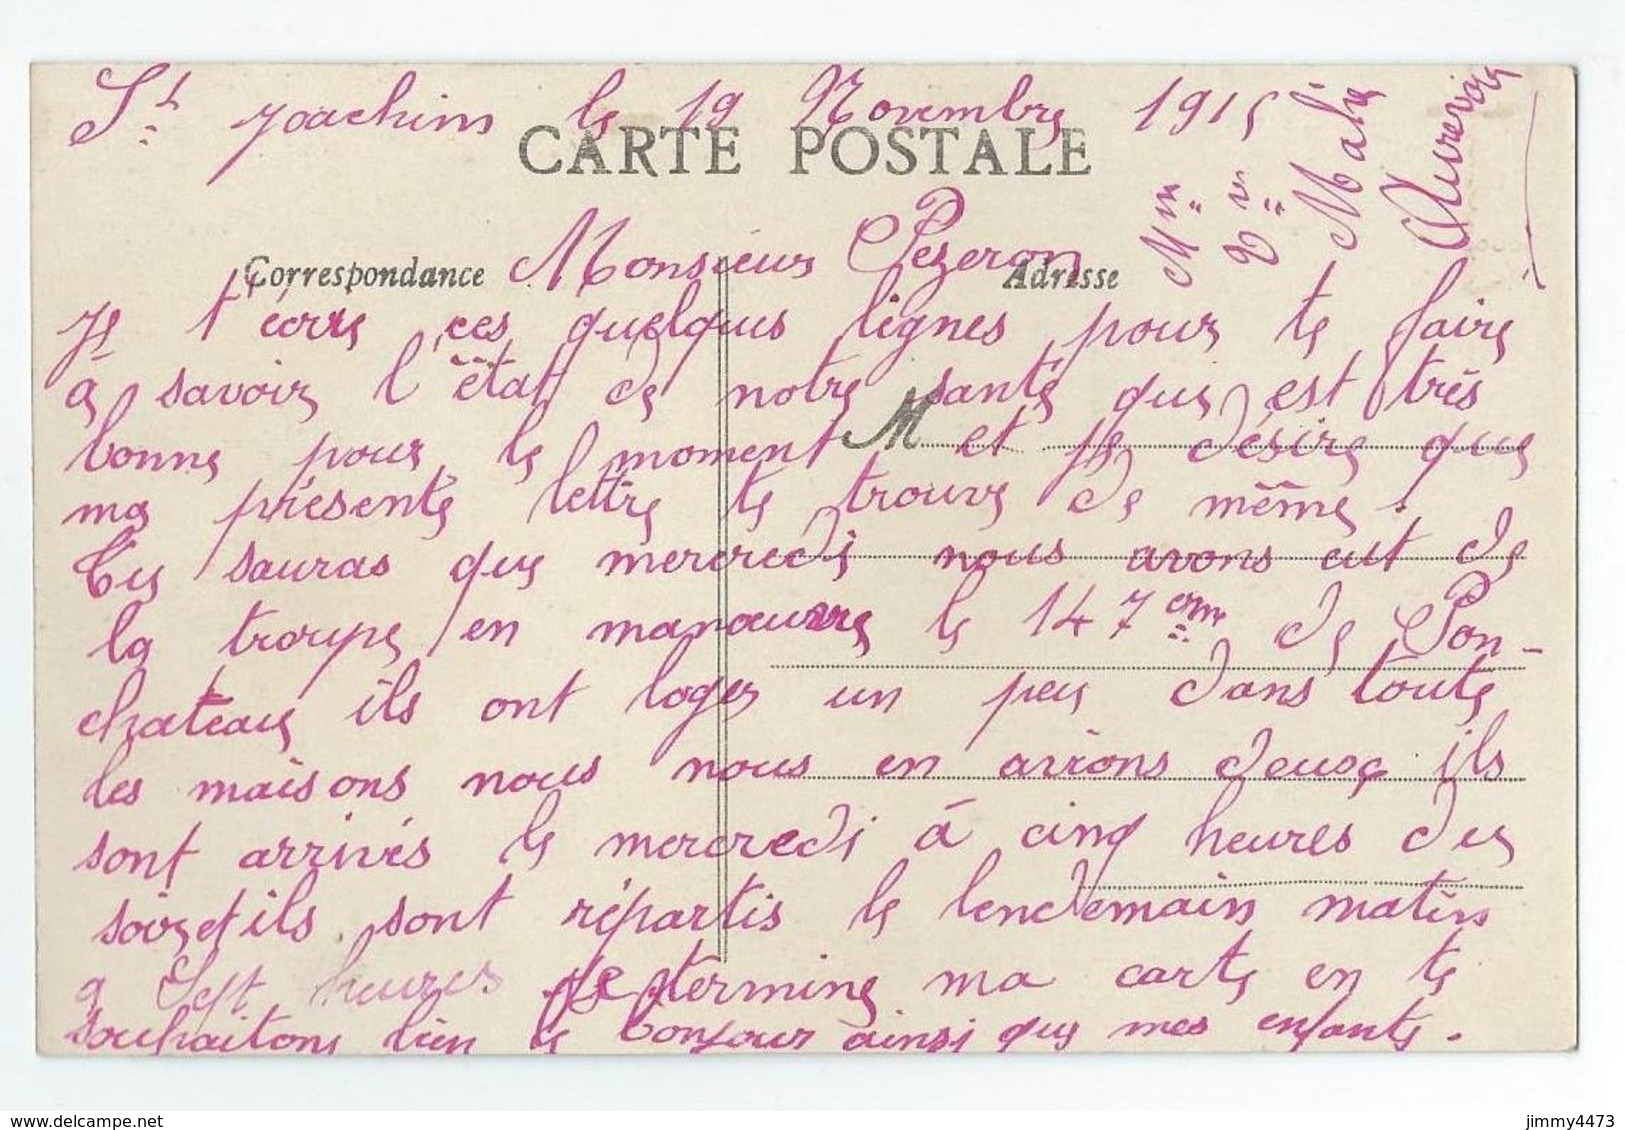 St Joachim le 19 Novembre 1915
CARTE POSTALE
Correspondance
Monsieur Pezeron
Adresse
Je t'écris ces quelques lignes pour te faire
a savoir l'état de notre santé que est très
bonne pour le moment et je désire que
M
ma présente lettre te trouve de même.
Tu sauras que mercredi nous avons eut de
la troupe en manœuvre le 147eme de Pon-
chateau ils ont loger un peu dans toute
les maisons nous nous en avions deux ils
sont arrivés le mercredi à cinq heures du
soir et ils sont répartis le lendemain matin
a Sept heures je termine ma carte en te
souhaitons bien le bonjour ainsi que mes enfants.
Mm
Vve
Mahé
Aurevoir
www.delcampe.net
jimmy4473